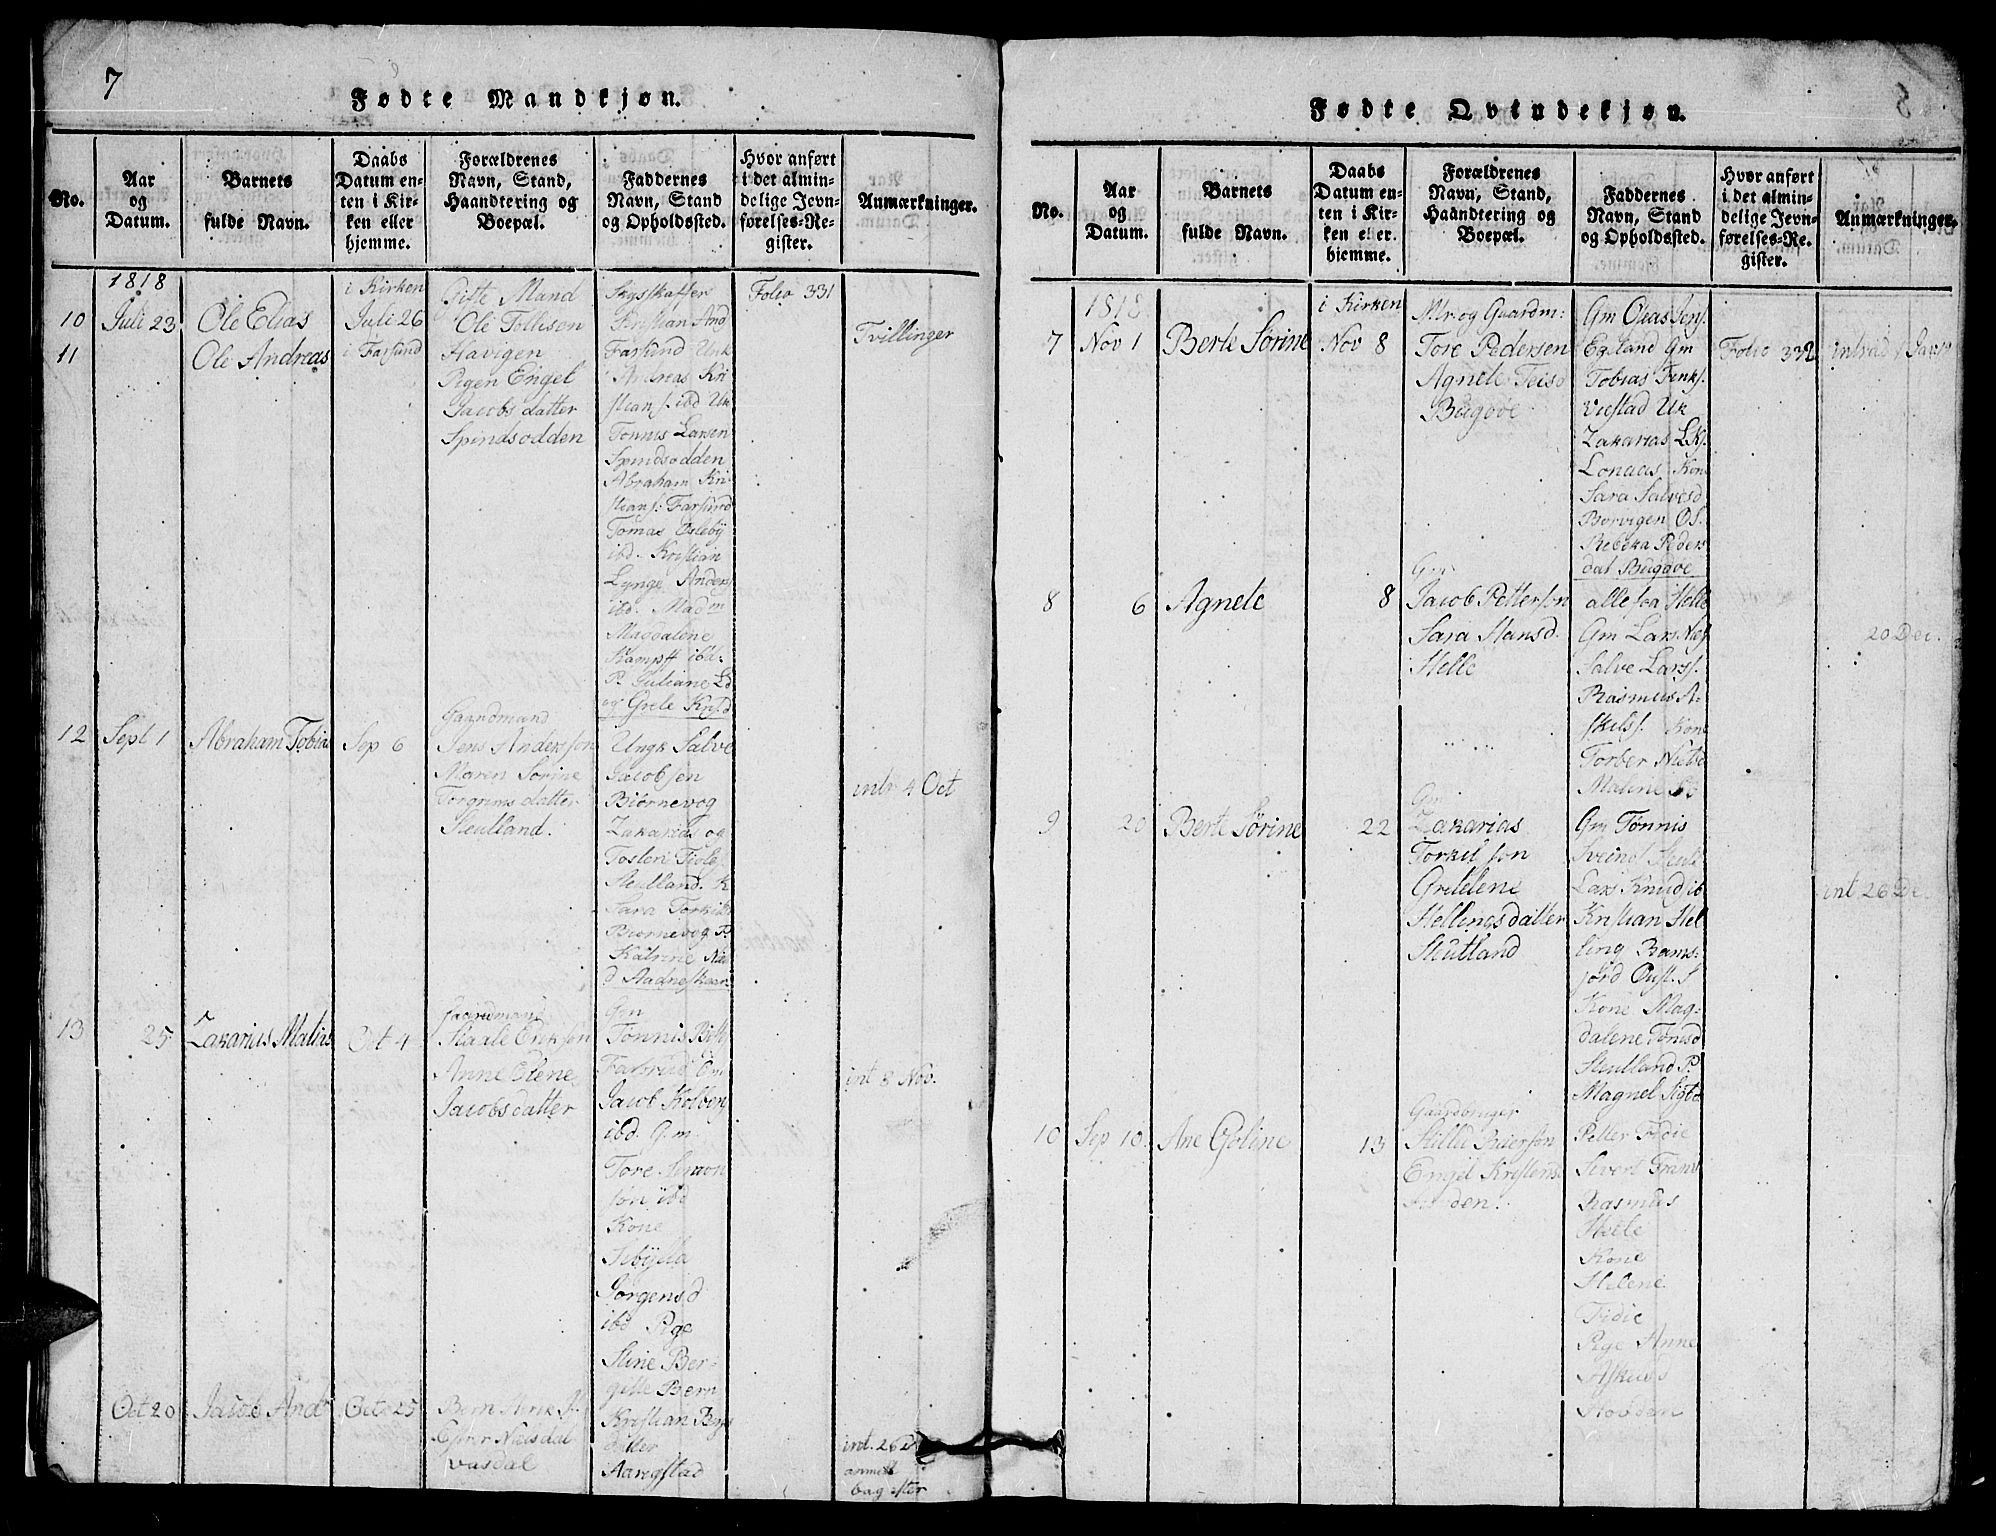 7
Fødte Mandkjøn.
No.
Aar
og
Datum.
Barnets
fulde Navn.
Daabs
Datum en-
ten i Kir-
ken eller
hjemme.
Forældrenes
Navn, Stand,
Haandtering og
Boepæl.
Faddernes
Navn, Stand
og Opholdssted.
Hvor anført
i det almin-
delige Jevn-
førelses-Re-
gister.
Anmærkninger.
1818
10
Juli 23
Ole Elias
i Kirken
Juli 26
Gifte Mand
Ole Tollisen
Havigen
Pigen Engel
Jacobsdatter
Spindsodden
Folio 331
Tvillinger
11
Ole Andreas
i Farsund
Kristian And
Farsund Unk
Andreas Kri
stians. ibd Uk
Tønnis Larsen
Spindsodden
Abraham Kri
stians: Farsund
Tomas Osleby
ibd. Kristian
Lynge Anders
ibd. Madm
Magdalene
Kampff ibd:
P. Juliane Ld
og Grete Kn.d
12
Sept 1
Abraham Tobias
Sep 6
Gaardmand
Jens Andersson
Maren Sørine
Torgrims datter
Steutland.
Ungk Salve
Jacobsen
Biørnevog
Zakarias og
Tosten Tiøle
Steutland. K
Sara Torkild
Biørnevog P.
Katrine Niel
d Aadneskaar
intr 4 Oct
13
25
Zakarius Malius
Oct 4
Gaardmand
Staale Erikson
Anne Elene
Jacobsdatter
Gm
Tønnis
Farsund Gm
Jacob Kolben
ibd. Gm
Tore Simon
søn ibd
Kone
Sibylla
Jørgensd
ibd Pge
Stine Ber-
gitte Bern
int 8 Nov.
Oct 20
Jacob Andr
Oct 25
Bern Henrik
Ester Nielsdat
Vasdal
Kristian
datter
Aarestad
int. 26 D
anmelt
bag efter
8
Fødte Qvindekjøn.
No.
Aar
og
Datum.
Barnets
fulde Navn.
Daabs
Datum en-
ten i Kir-
ken eller
hjemme.
Forældrenes
Navn, Stand,
Haandtering og
Boepæl.
Faddernes
Navn, Stand
og Opholdssted.
Hvor anført
i det almin-
delige Jevn-
førelses-Re-
gister.
Anmærkninger.
1818
7
Nov 1
Berte Sørine
i Kirken
Nov 8
Mr. og Gaardm:
Tore Pedersen
Agnete Teisd
Bugøe
Gm Elias Jens.
Egeland Gm
Tobias
Vistad Uk
Zakarias
Lonaas Kon
Sara Salvesd
Borvigen
Rebeka Peders
dat Bugøe
Folio 332
8
6
Agnete
8
Gm
Jacob Petterson
Sara Hansd.
Helle
alle paa Helle
Gm Lars
Salve Larss.
Rasmus A-
skils. Kone
Torber Nielsd
Maline
20 Dec.
9
20
Berte Sørine
22
Gm
Zakarias
Torkilson
Gretelene
Hellingsdatter
Steutland
Gm Tønnis
Svends Steut
Lars Knud ib
Kristian Hel
ling Rams-
fjord
Kone Mag-
dalene Tønisd
Steutland P.
Magnel
int 26 De.
10
Sep 10
Ane Goline
13
Gaardbruger
Engel Kristens
Petter Tidie
Sivert Frants
Rasmus
Helle
Kone
Helene
Tidie
Pge Anne
Askilsd
Hovden